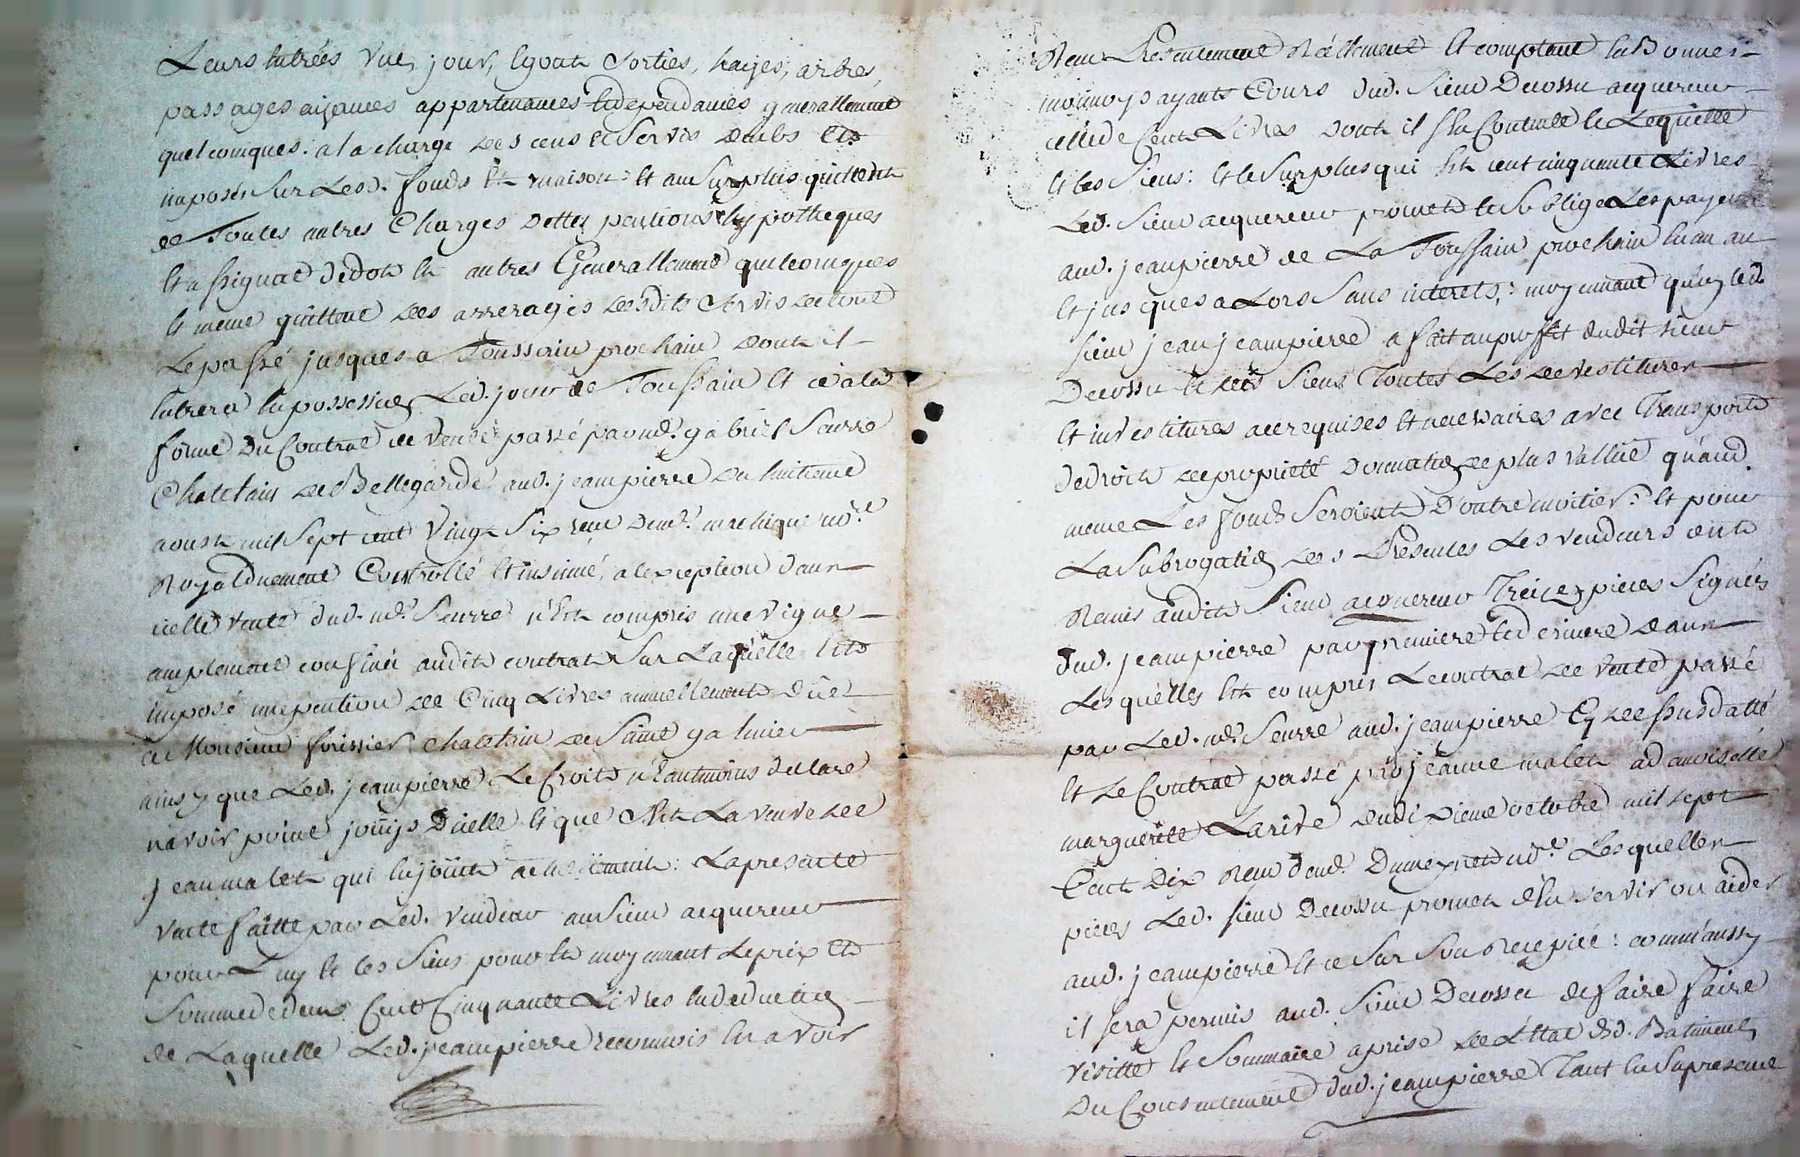 Leurs entrées vue, jour, Egout sorties, hayes, arbres,
passages aizances appartenances et dependances generallement
quelconques: a la charge des cens et servis deubs et
imposés sur Lesd. fonds Et maison: et au surplus quittent
de Toutes autres Charges Dettes pentions hypotheques
Et assignat de dot Et autres Generallement quelconques
Et meme quittent des arrerages desdits servis de tout
Le passé jusques a Toussain prochain Dont il
Entrera En possession Led. jour de Toussain Et ce a la
forme Du Contrat de vente passé par md. gabriel Seurre
Chatelain de Bellegarde aud. jeampierre du huitieme
aoust mil sept cent vingt six reçu Dem.e nd.re
Royal duement Controllé Et insinué, a lexception dans
icelle vente dud. md. Seurre n'Est compris une vigne
amplement confinée audit contrat sur Laquelle Est
imposé une pention de Cinq Livres annuellement düe
a Monsieur forissier Chatelain de Saint galmier
ainsy que Led. jeampierre Le Croit n'eantmoins declare
navoir point joüys D'icelle Et que C'est La veuve de
jean malet qui En joüit : La presente
vente faitte par Led. vendeur au Sieur acquereur
pour Luy Et les siens pour Et moyennant Le prix Et
Somme de deux Cent Cinquante Livres En deduction
de Laquelle Led. jeampierre reconnois En avoir
Reçu Presentement Réellement Et comptant En Bonnes
monnoys ayants Cours dud. Sieur Decossu acquereur
celle de Cent Livres dont il s'En Contente Le Lequitte
Et les Siens: Et le surplus qui Est cent cinquante Livres
Led. Sieur acquereur promet Et s'oblige Les payer
aud. jeampierre de La Toussain prochain En un an
Et jusques a Lors Sans interets: moyennant quoy Led.
sieur jean jeampierre a fait au proffit dudit sieur
Decossu Et des Siens Toutes Les devestitures
Et investitures a ce requises Et necessaires avec Transport
de droit de proprieté Donnation de plus vallüe quand
meme Les fonds seroient D'outre moitier: Et pour
La Subrogation des Presentes Les vendeurs ont
Remis audit Sieur acquereur Treize pieces signées
dud. jeampierre par premiere Et derniere dans
Lesquelles Est compris Le contrat de vente passé
par Led. md. Seurre aud. jeampierre Cy dessus datté
Et Le Contrat passé par jeanne malet a damoiselle
marguerite Larive du dixieme octobre mil sept
Cent Dix Reçu dud. nd.re Lesquelles
pieces Led. sieur Decossu promet d'En servir ou aider
aud. jeampierre Et ce sur son Recepicé: comm'aussy
il sera permis aud. Sieur Decossu de faire faire
visitte Et Sommaire aprise de L'Etat dud. Batiment
Du Consentement dud. jeampierre Tant En sa presence